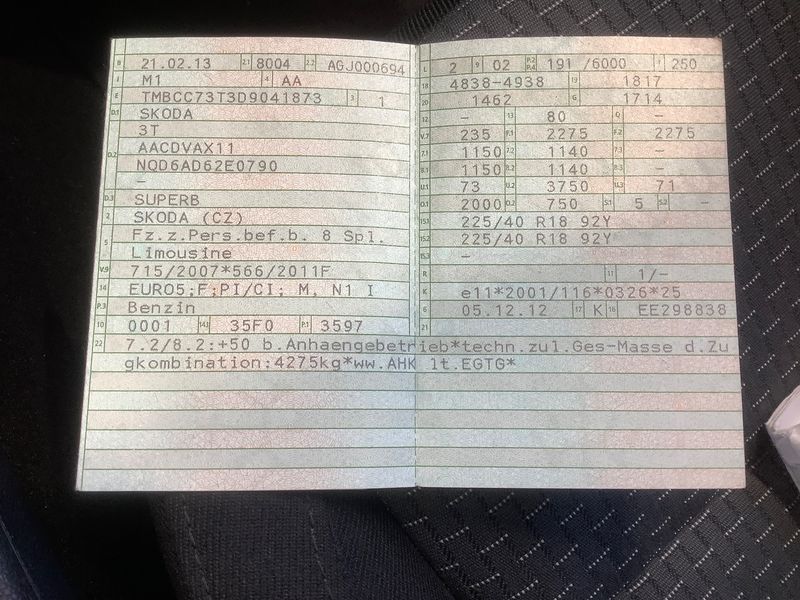 B 21.02.13 2.1 8004 2.2 AGJ000694
J M1 4 AA
E TMBCC73T3D9041873 3 1
D.1 SKODA
3T
D.2 AACDVAX11
NQD6AD62E0790
–
D.3 SUPERB
2 SKODA (CZ)
5 Fz.z.Pers.bef.b. 8 Spl.
Limousine
V.9 715/2007*566/2011F
14 EURO5;F;PI/CI; M, N1 I
P.3 Benzin
10 0001 14.1 35F0 P.1 3597
L 2 9 02 P.2 P.4 191 /6000 T 250
18 4838-4938 19 1817
20 1462 G 1714
12 – 13 80 Q –
V.7 235 F.1 2275 F.2 2275
7.1 1150 7.2 1140 7.3 –
8.1 1150 8.2 1140 8.3 –
U.1 73 U.2 3750 U.3 71
O.1 2000 O.2 750 S.1 5 S.2 –
15.1 225/40 R18 92Y
15.2 225/40 R18 92Y
15.3 –
R 11 1/–
K e11*2001/116*0326*25
6 05.12.12 17 K 16 EE298838
21
22 7.2/8.2:+50 b.Anhaengebetrieb*techn.zul.Ges-Masse d.Zu
gkombination:4275kg*ww.AHK lt.EGTG*